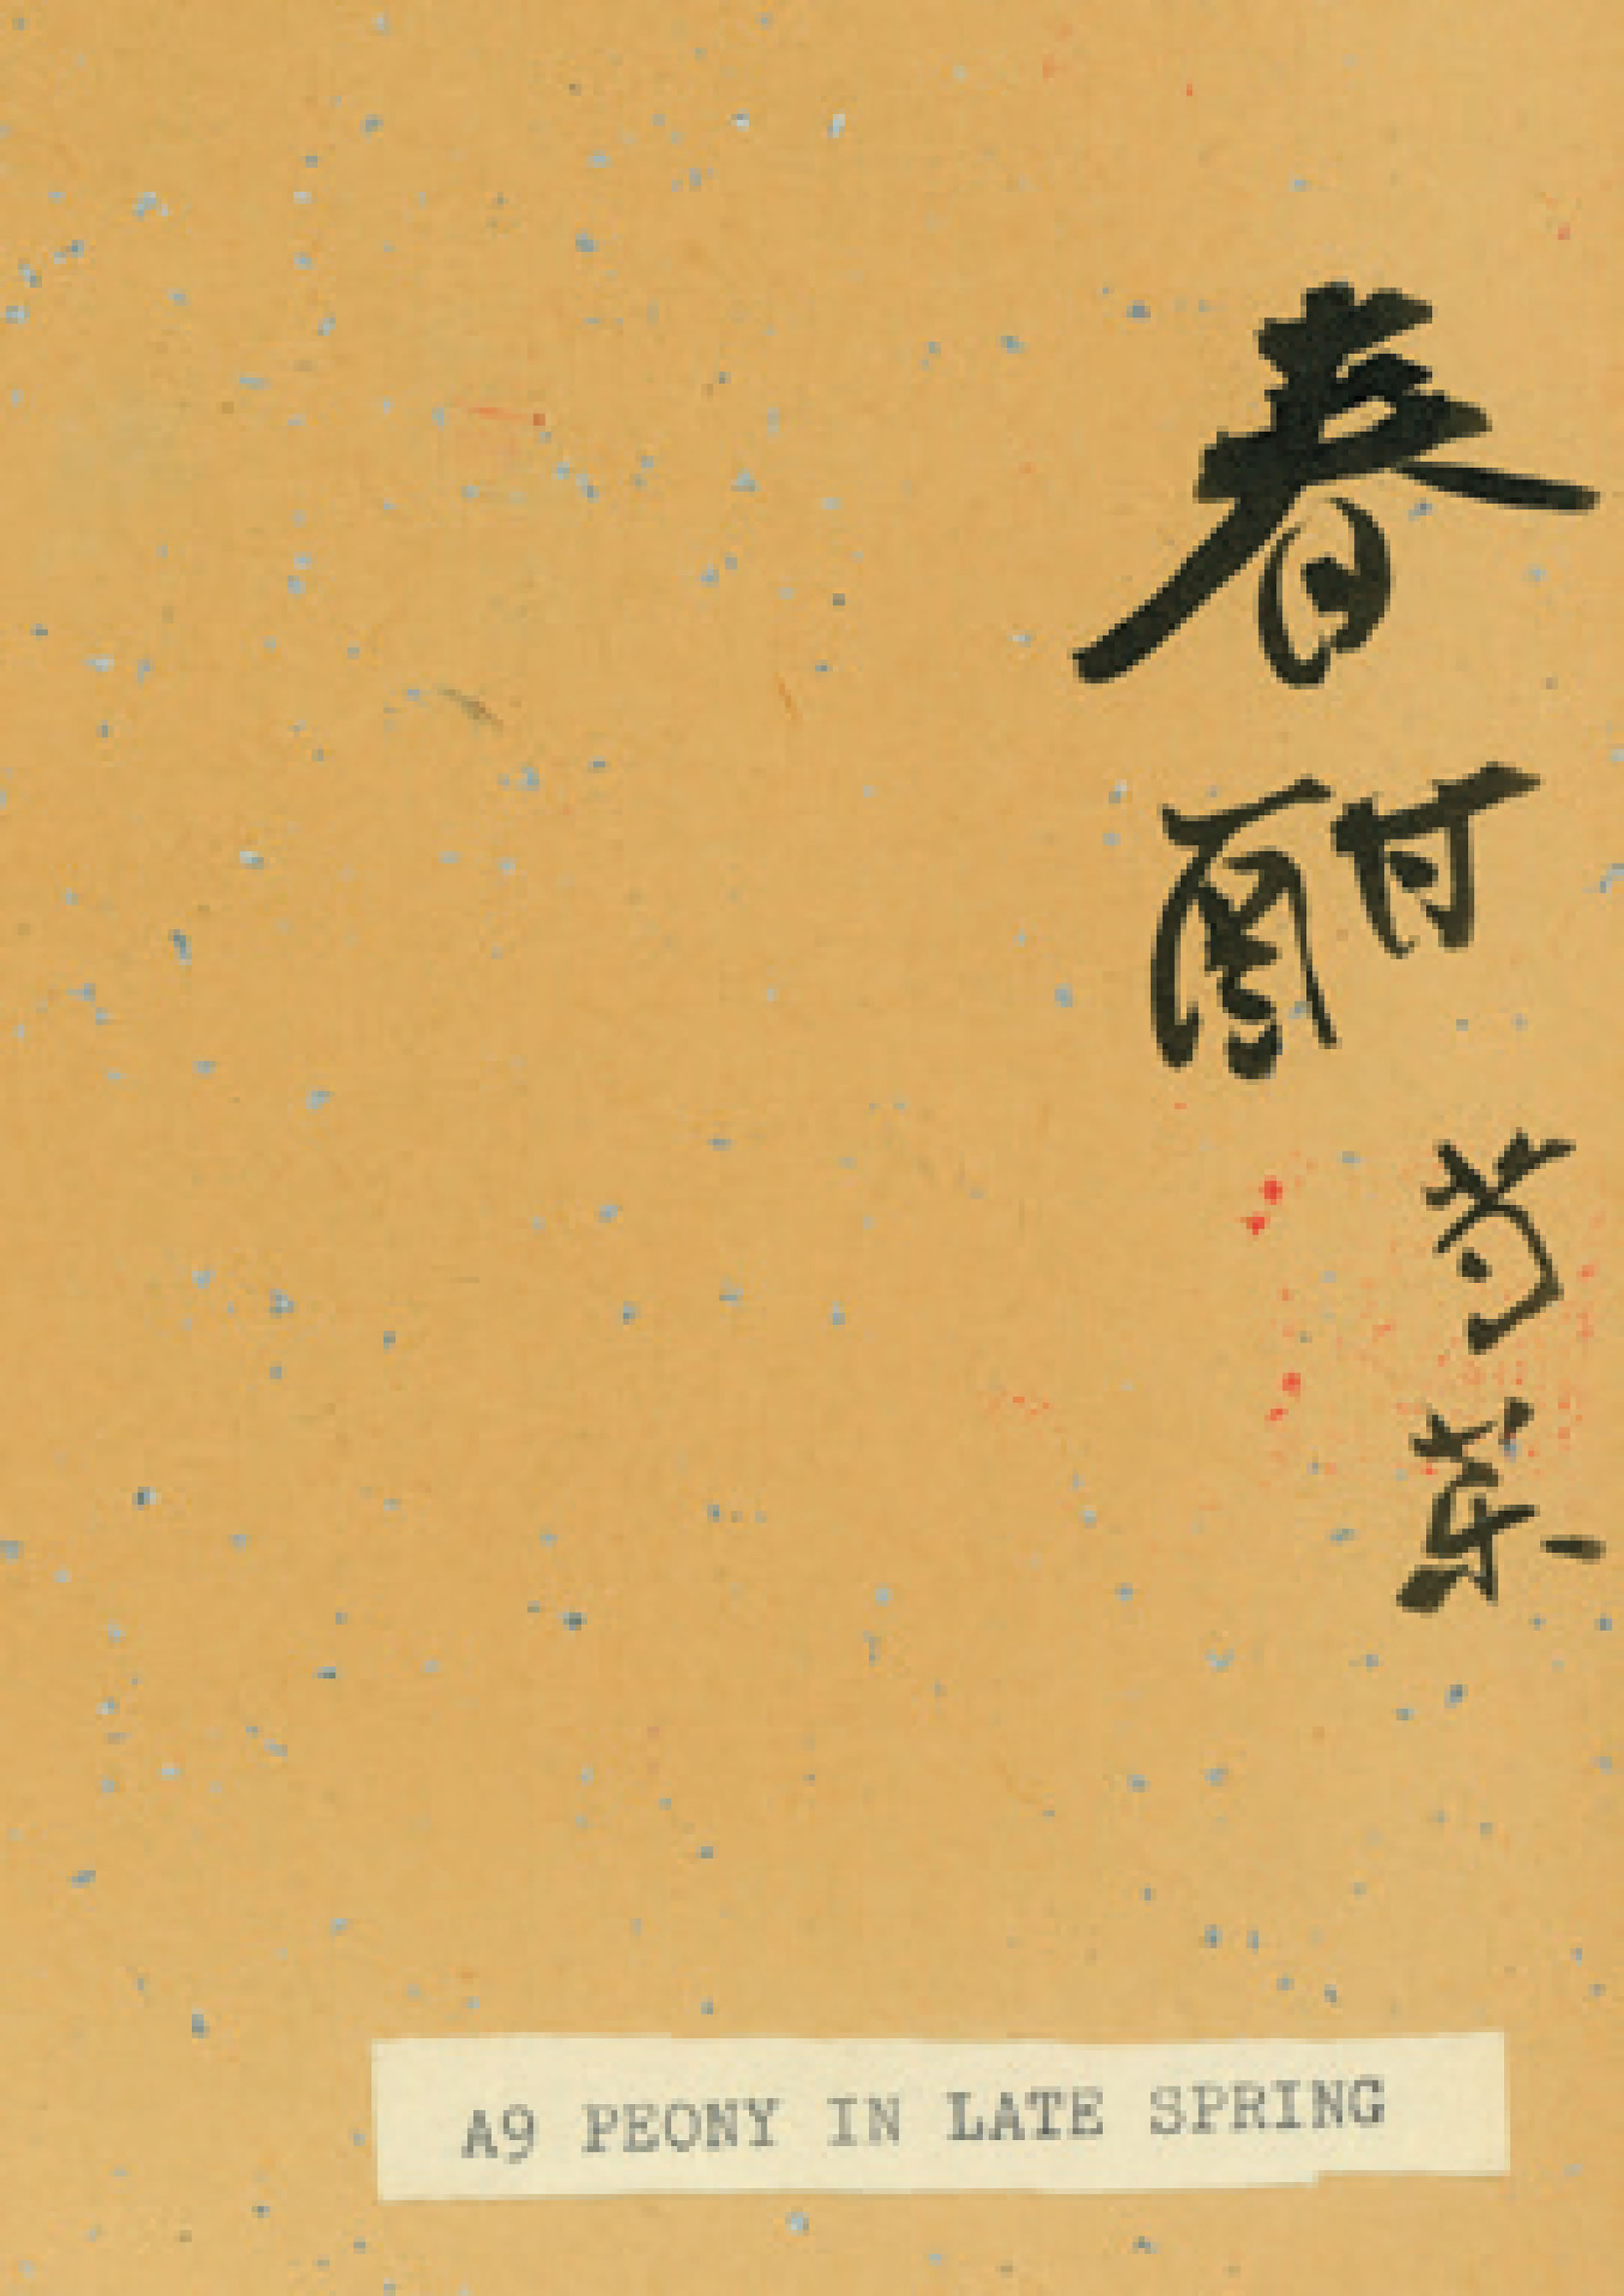 春酣
芍藥
A9 PEONY IN LATE SPRING